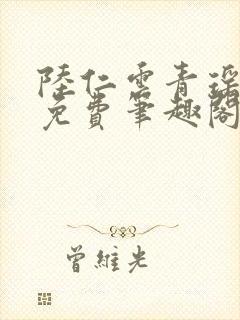 陸仁雲青瑤
免費筆趣閣
曾維光